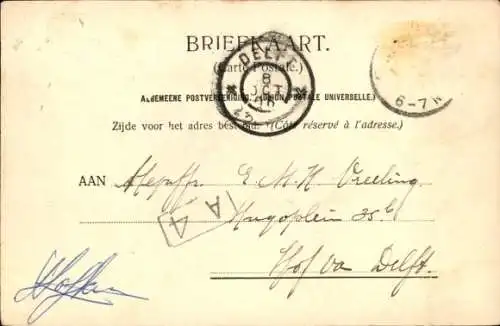 BRIEFKAART.
(Carte Postale.)
ALGEMEENE POSTVEREENIGING. (UNION POSTALE UNIVERSELLE.)
Zijde voor het adres bestemd. (Côté réservé à l'adresse.)
DELFT
8
OCT
6-7N
AAN Mejuffr. E. M. H. Vreeling
Hugoplein 35
A
4
Hof van Delft.